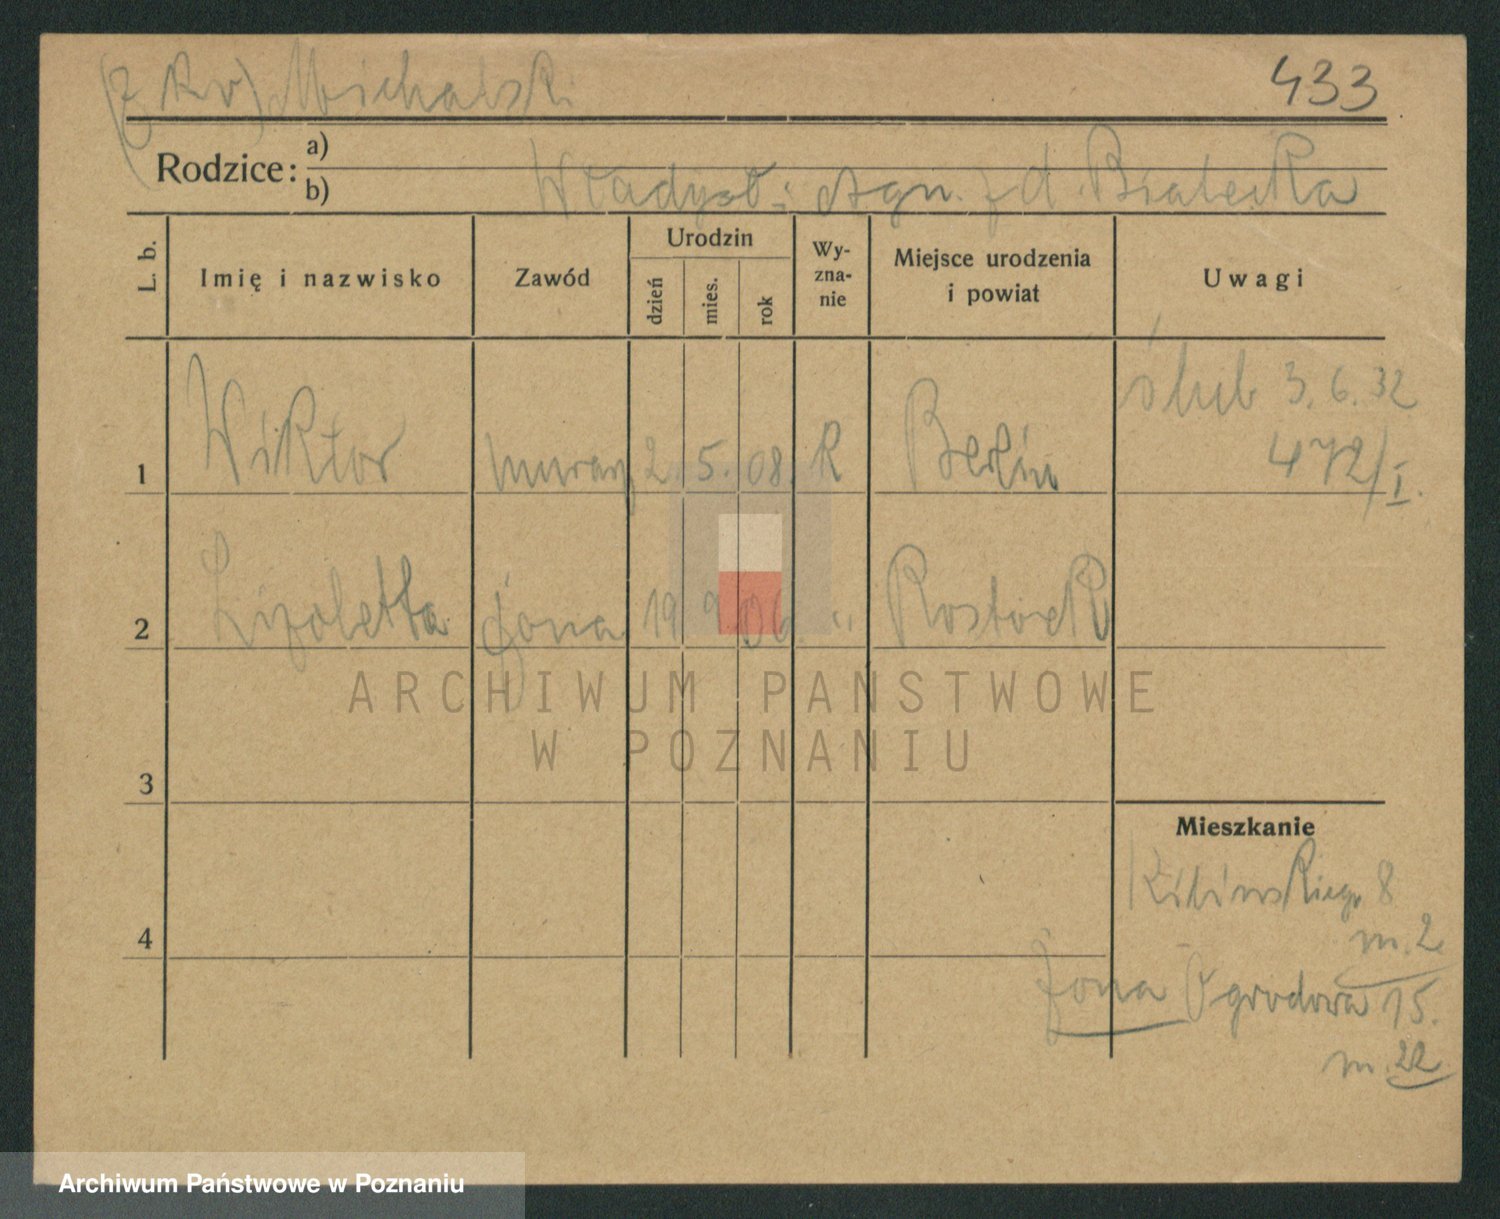 (z Kr) Michalski 433
Rodzice: a)
b) Władysł. i Agn. z d. Białecka
L. b. Imię i nazwisko Zawód Urodzin dzień mies. rok Wy-zna-nie Miejsce urodzenia i powiat Uwagi
1 Wiktor murarz 2. 5. 08. R Berlin ślub 3. 6. 32
472/I.
2 Lizoletta żona 19 9 06. " Rostock
ARCHIWUM PAŃSTWOWE
W POZNANIU
3
Mieszkanie
Kilińskiego 8
4 m. 2
żona Ogrodowa 15.
m. 22
Archiwum Państwowe w Poznaniu